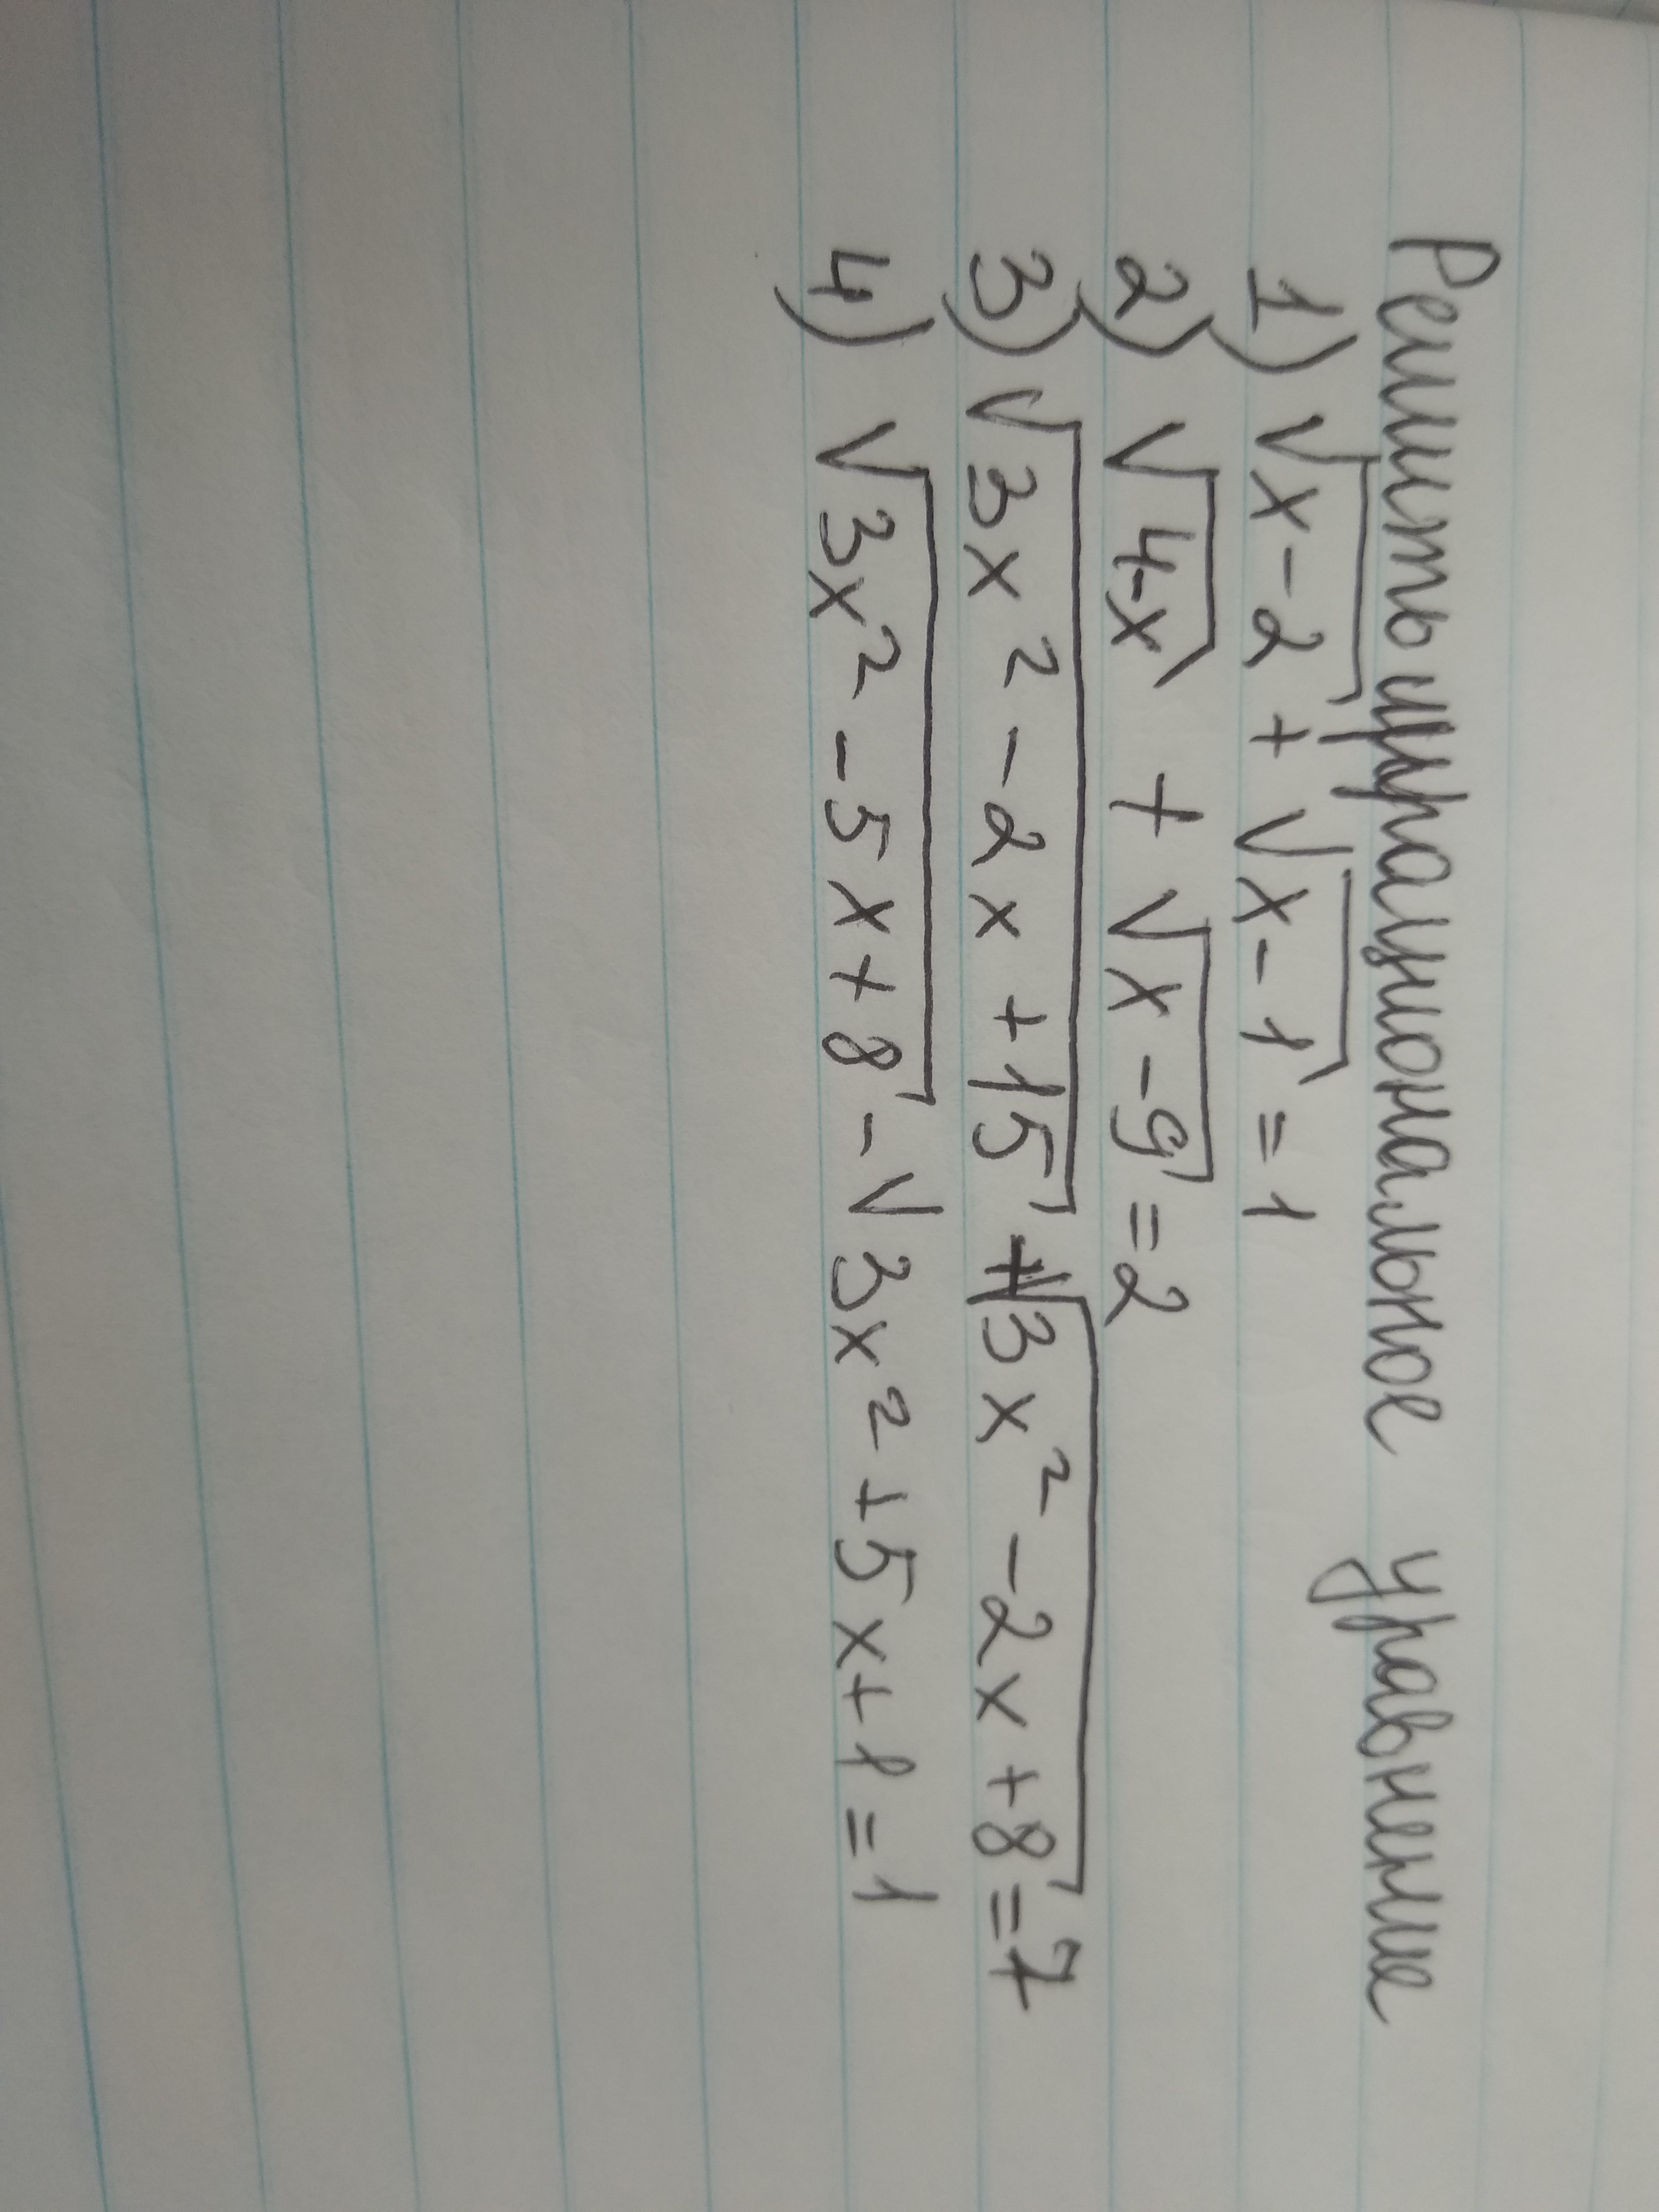 Решить иррациональное уравнение
1) √x-2 + √x-1 = 1
2) √4-x + √x-9 = 2
3) √3x² - 2x + 15 + √3x² - 2x + 8 = 7
4) √3x² - 5x + 8 - √3x² + 5x + 1 = 1